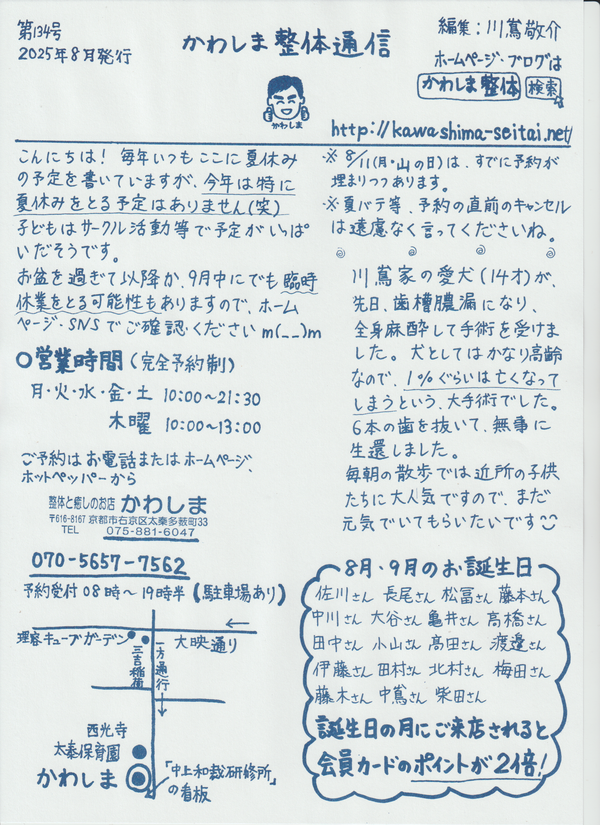 第134号
2025年8月発行
かわしま整体通信
編集：川嶌敬介
ホームページ・ブログは
かわしま整体 検索
かわしま
http://kawashima-seitai.net/
こんにちは！毎年いつもここに夏休み
の予定を書いていますが、今年は特に
夏休みをとる予定はありません(笑)
子どもはサークル活動等で予定がいっぱ
いだそうです。
お盆を過ぎて以降か、9月中にでも臨時
休業をとる可能性もありますので、ホーム
ページ・SNSでご確認くださいm(__)m
○営業時間(完全予約制)
月・火・水・金・土 10:00〜21:30
木曜 10:00〜13:00
ご予約はお電話またはホームページ、
ホットペッパーから
整体と癒しのお店 かわしま
〒616-8167 京都市右京区太秦多薮町33
TEL 075-881-6047
070-5657-7562
予約受付 08時〜19時半(駐車場あり)
理容キューブガーデン
大映通り
三吉稲荷
一方通行
西光寺
太秦保育園
かわしま
「中上和裁研修所」
の看板
※8/11(月・山の日)は、すでに予約が
埋まりつつあります。
※夏バテ等、予約の直前のキャンセル
は遠慮なく言ってくださいね。
川嶌家の愛犬(14才)が、
先日、歯槽膿漏になり、
全身麻酔して手術を受けま
した。犬としてはかなり高齢
なので、1%ぐらいは亡くなって
しまうという、大手術でした。
6本の歯を抜いて、無事に
生還しました。
毎朝の散歩では近所の子供
たちに大人気ですので、まだ
元気でいてもらいたいです
8月・9月のお誕生日
佐川さん 長尾さん 松冨さん 藤本さん
中川さん 大谷さん 亀井さん 高橋さん
田中さん 小山さん 高田さん 渡邉さん
伊藤さん 田村さん 北村さん 梅田さん
藤木さん 中嶌さん 柴田さん
誕生日の月にご来店されると
会員カードのポイントが2倍!